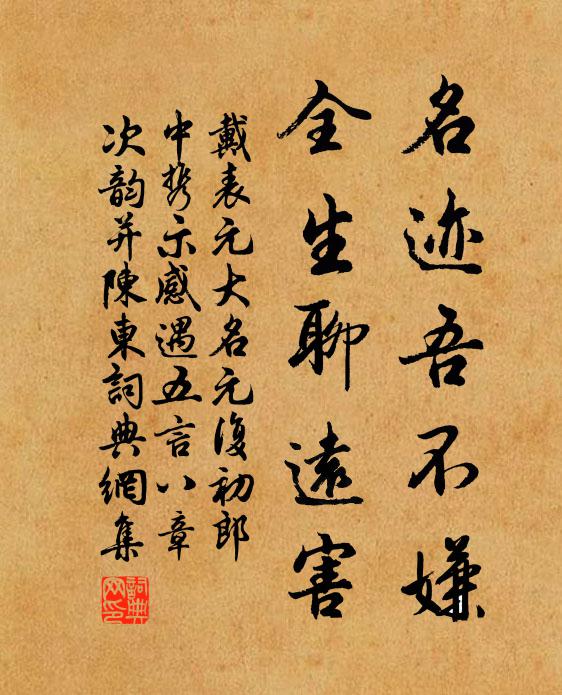 名迹吾不嫌
全生聊遠害
戴表元大名元復初郎
中携示感遇五言八章
次韵并陳東詞典網集
詞典
网印